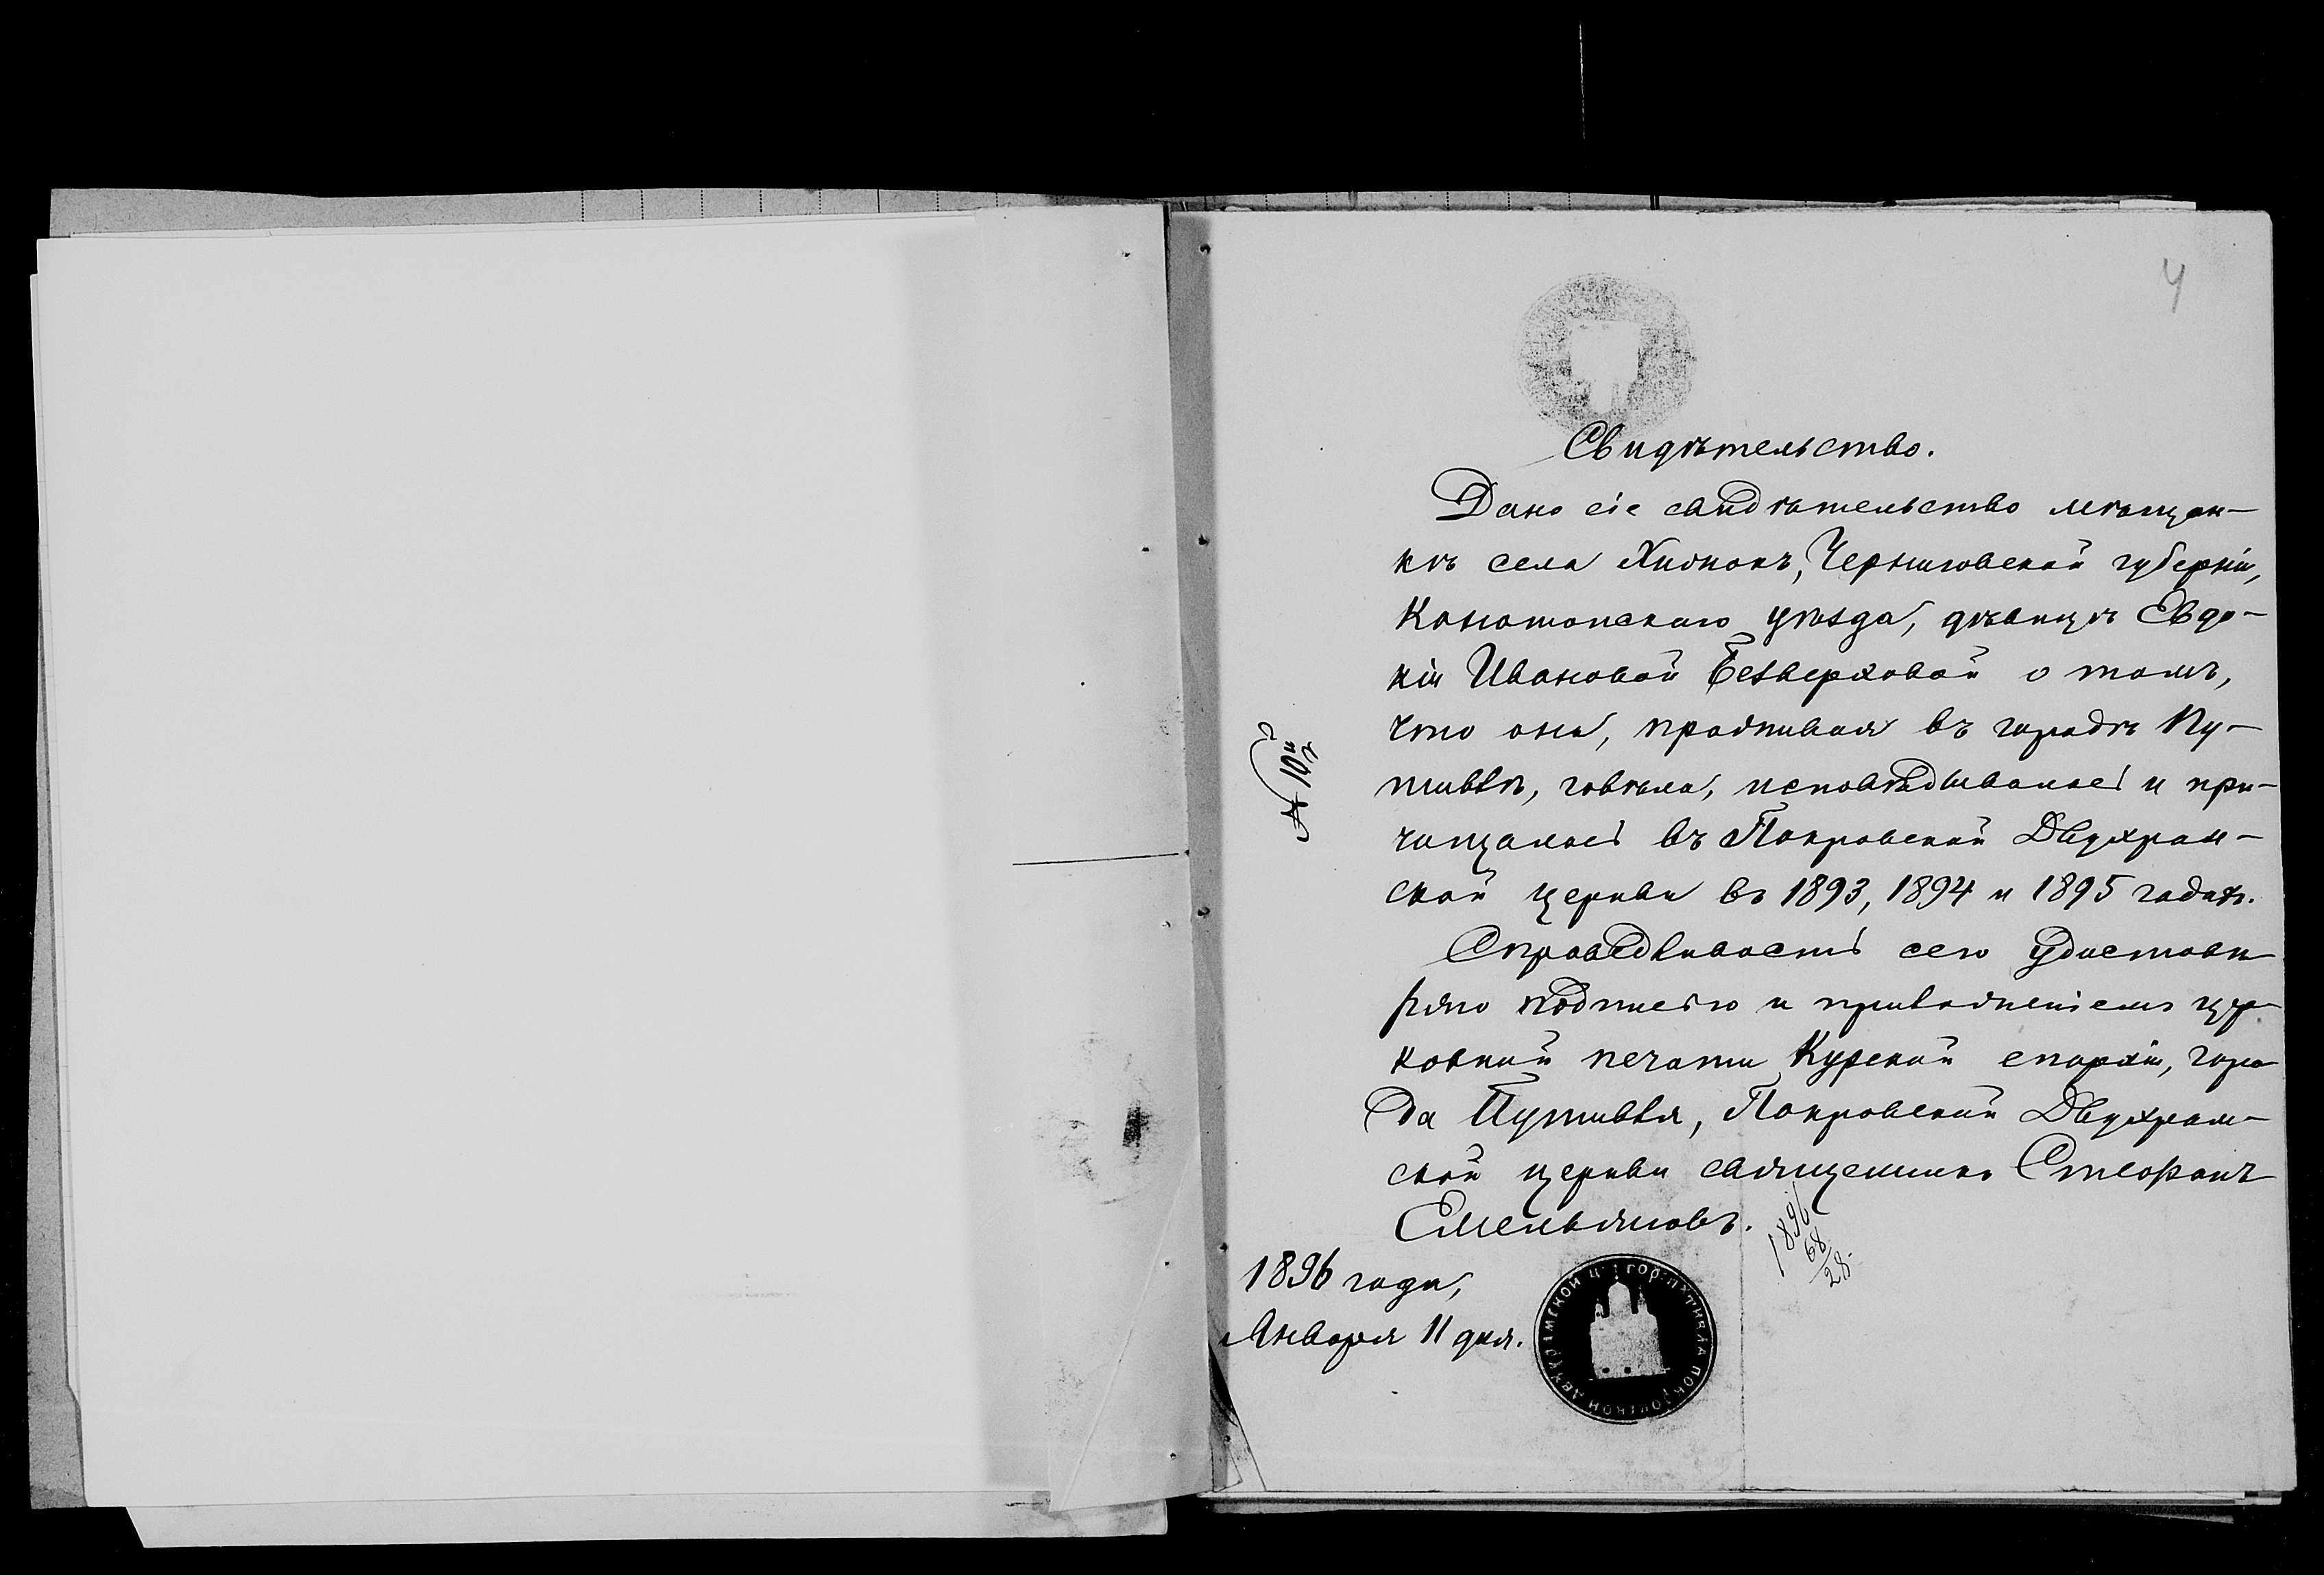 4
Свидѣтельство.
Дано сіе свидѣтельство мѣщан-
кѣ села Хижокъ, Черниговской губерніи,
Конотопскаго уѣзда, дѣвицѣ Евдо-
кіи Ивановой Безверховой о томъ,
что она, проживая въ городѣ Пу-
тивлѣ, говѣла, исповѣдывалась и при-
чащалась въ Покровской Двухрам-
ской церкви въ 1893, 1894 и 1895 годахъ.
Справедливость сего удостовѣ-
ряю подписью и приложеніемъ цер-
ковной печати Курской епархіи, горо-
да Путивля, Покровской Двухрам-
ской церкви священникъ Стефанъ
Емельяновъ.
1896 года,
Января 11 дня.
№ 10й
1896
68
28.
ГОР. ПУТИВЛА ПОКРОВСКОЙ ДВУХРАМСКОЙ Ц.